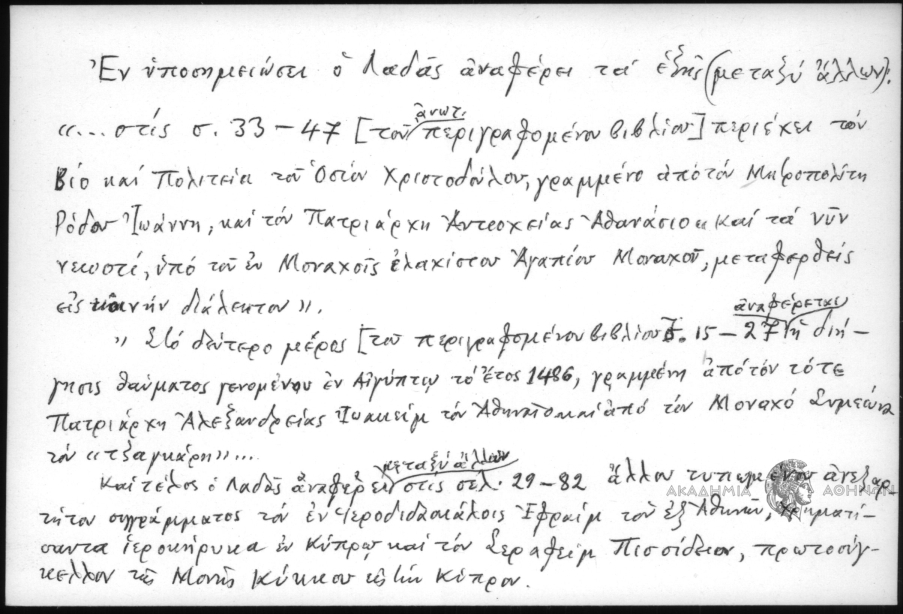 Ἐν ὑποσημειώσει ὁ Λαδᾶς ἀναφέρει τά ἑξῆς (μεταξύ ἄλλων).
«... στίς σ. 33 – 47 [τοῦ ἀνωτ. περιγραφομένου βιβλίου] περιέχει τόν
Βίο καί Πολιτεία τοῦ Ὁσίου Χριστοδούλου, γραμμένο ἀπό τόν Μητροπολίτη
Ρόδου Ἰωάννη, καί τόν Πατριάρχη Ἀντιοχείας Ἀθανάσιο «καί τά νῦν
νεωστί, ὑπό τοῦ ἐν Μοναχοῖς ἐλαχίστου Ἀγαπίου Μοναχοῦ, μεταφερθείς
εἰς κοινήν διάλεκτον».
» Στό δεύτερο μέρος [τοῦ περιγραφομένου βιβλίου] σ. 15 – 27 ἀναφέρεται ἡ διή-
γησις θαύματος γενομένου ἐν Αἰγύπτῳ τό ἔτος 1486, γραμμένη ἀπό τόν τότε
Πατριάρχη Ἀλεξανδρείας Ἰωακείμ τόν Ἀθηναῖο καί ἀπό τόν Μοναχό Συμεών
τόν «τζαγκάρη»...
Καί τέλος ὁ Λαδᾶς ἀναφέρει μεταξύ ἄλλων στίς σελ. 29 – 82 ἄλλου τυπωμένου ἀνεξαρ-
τήτου συγγράμματος τόν ἐν Ἱεροδιδασκάλοις Ἐφραίμ τόν ἐξ Ἀθηνῶν, χρηματί-
σαντα ἱεροκήρυκα ἐν Κύπρῳ καί τόν Σεραφείμ Πισσίδειον, πρωτοσύγ-
κελλον τῆς Μονῆς Κύκκου εἰς τήν Κύπρον.
ΑΚΑΔΗΜΙΑ ΑΘΗΝΩΝ